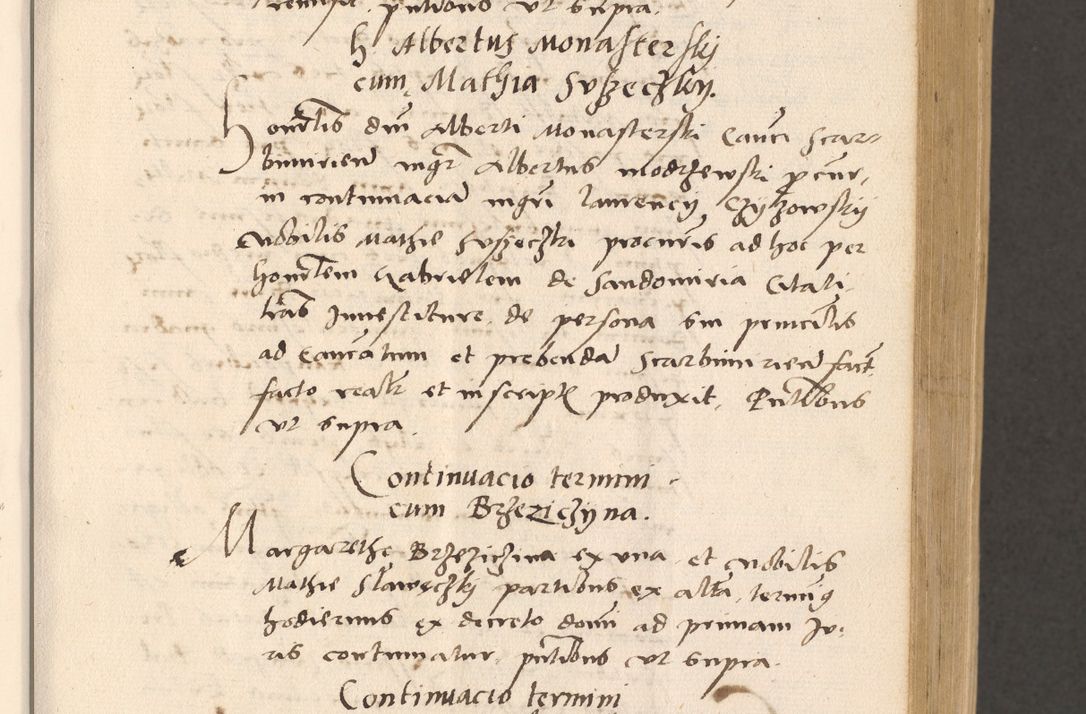 remisit, pntibus ut supra.
h Albertus Monasterskj
cum Mathia Suszeczskij.
Honorabilis dni Alberti Monasterski Canci Scar-
bimirien mgr Albertus Modrzewski procur,
in contumacia mgri laurency Czyszowskij
Nobilis Mathie Suszeczki procuris ad hoc per
honorabilem Gabrielem de Sandomiria Citati,
lras Investiture de persona sui principalis
ad Canonicatum et prebendam Scarbimirien fact
facto realr et in script produxit, Pntibus
ut supra.
Continuacio termini
cum Brzeziczijna.
Margarethe Brzeziczina ex una et Nobilis
Mathie Slaweczkj partibus ex altra, terminus
hodiernus ex decreto domi ad primam Ju-
ris continuatur, pntibus ut supra.
Continuacio termini